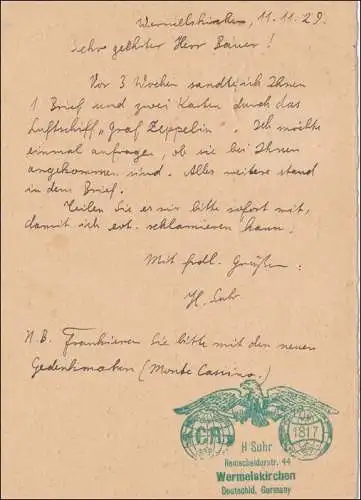 Wermelskirchen, 11.11.29.
Sehr geehrter Herr Bauer!
Vor 3 Wochen sandte ich Ihnen
1 Brief und zwei Karten durch das
Luftschiff „Graf Zeppelin“. Ich möchte
einmal anfragen, ob sie bei Ihnen
angekommen sind. Alles weitere stand
in dem Brief.
Teilen Sie es mir bitte sofort mit,
damit ich evt. reklamieren kann.
Mit frdl. Grüßen
H. Suhr
N.B. Frankieren Sie bitte mit den neuen
Gedenkmarken (Monte Cassino.)
1817
H Suhr
Remscheiderstr. 44
Wermelskirchen
Deutschld, Germany